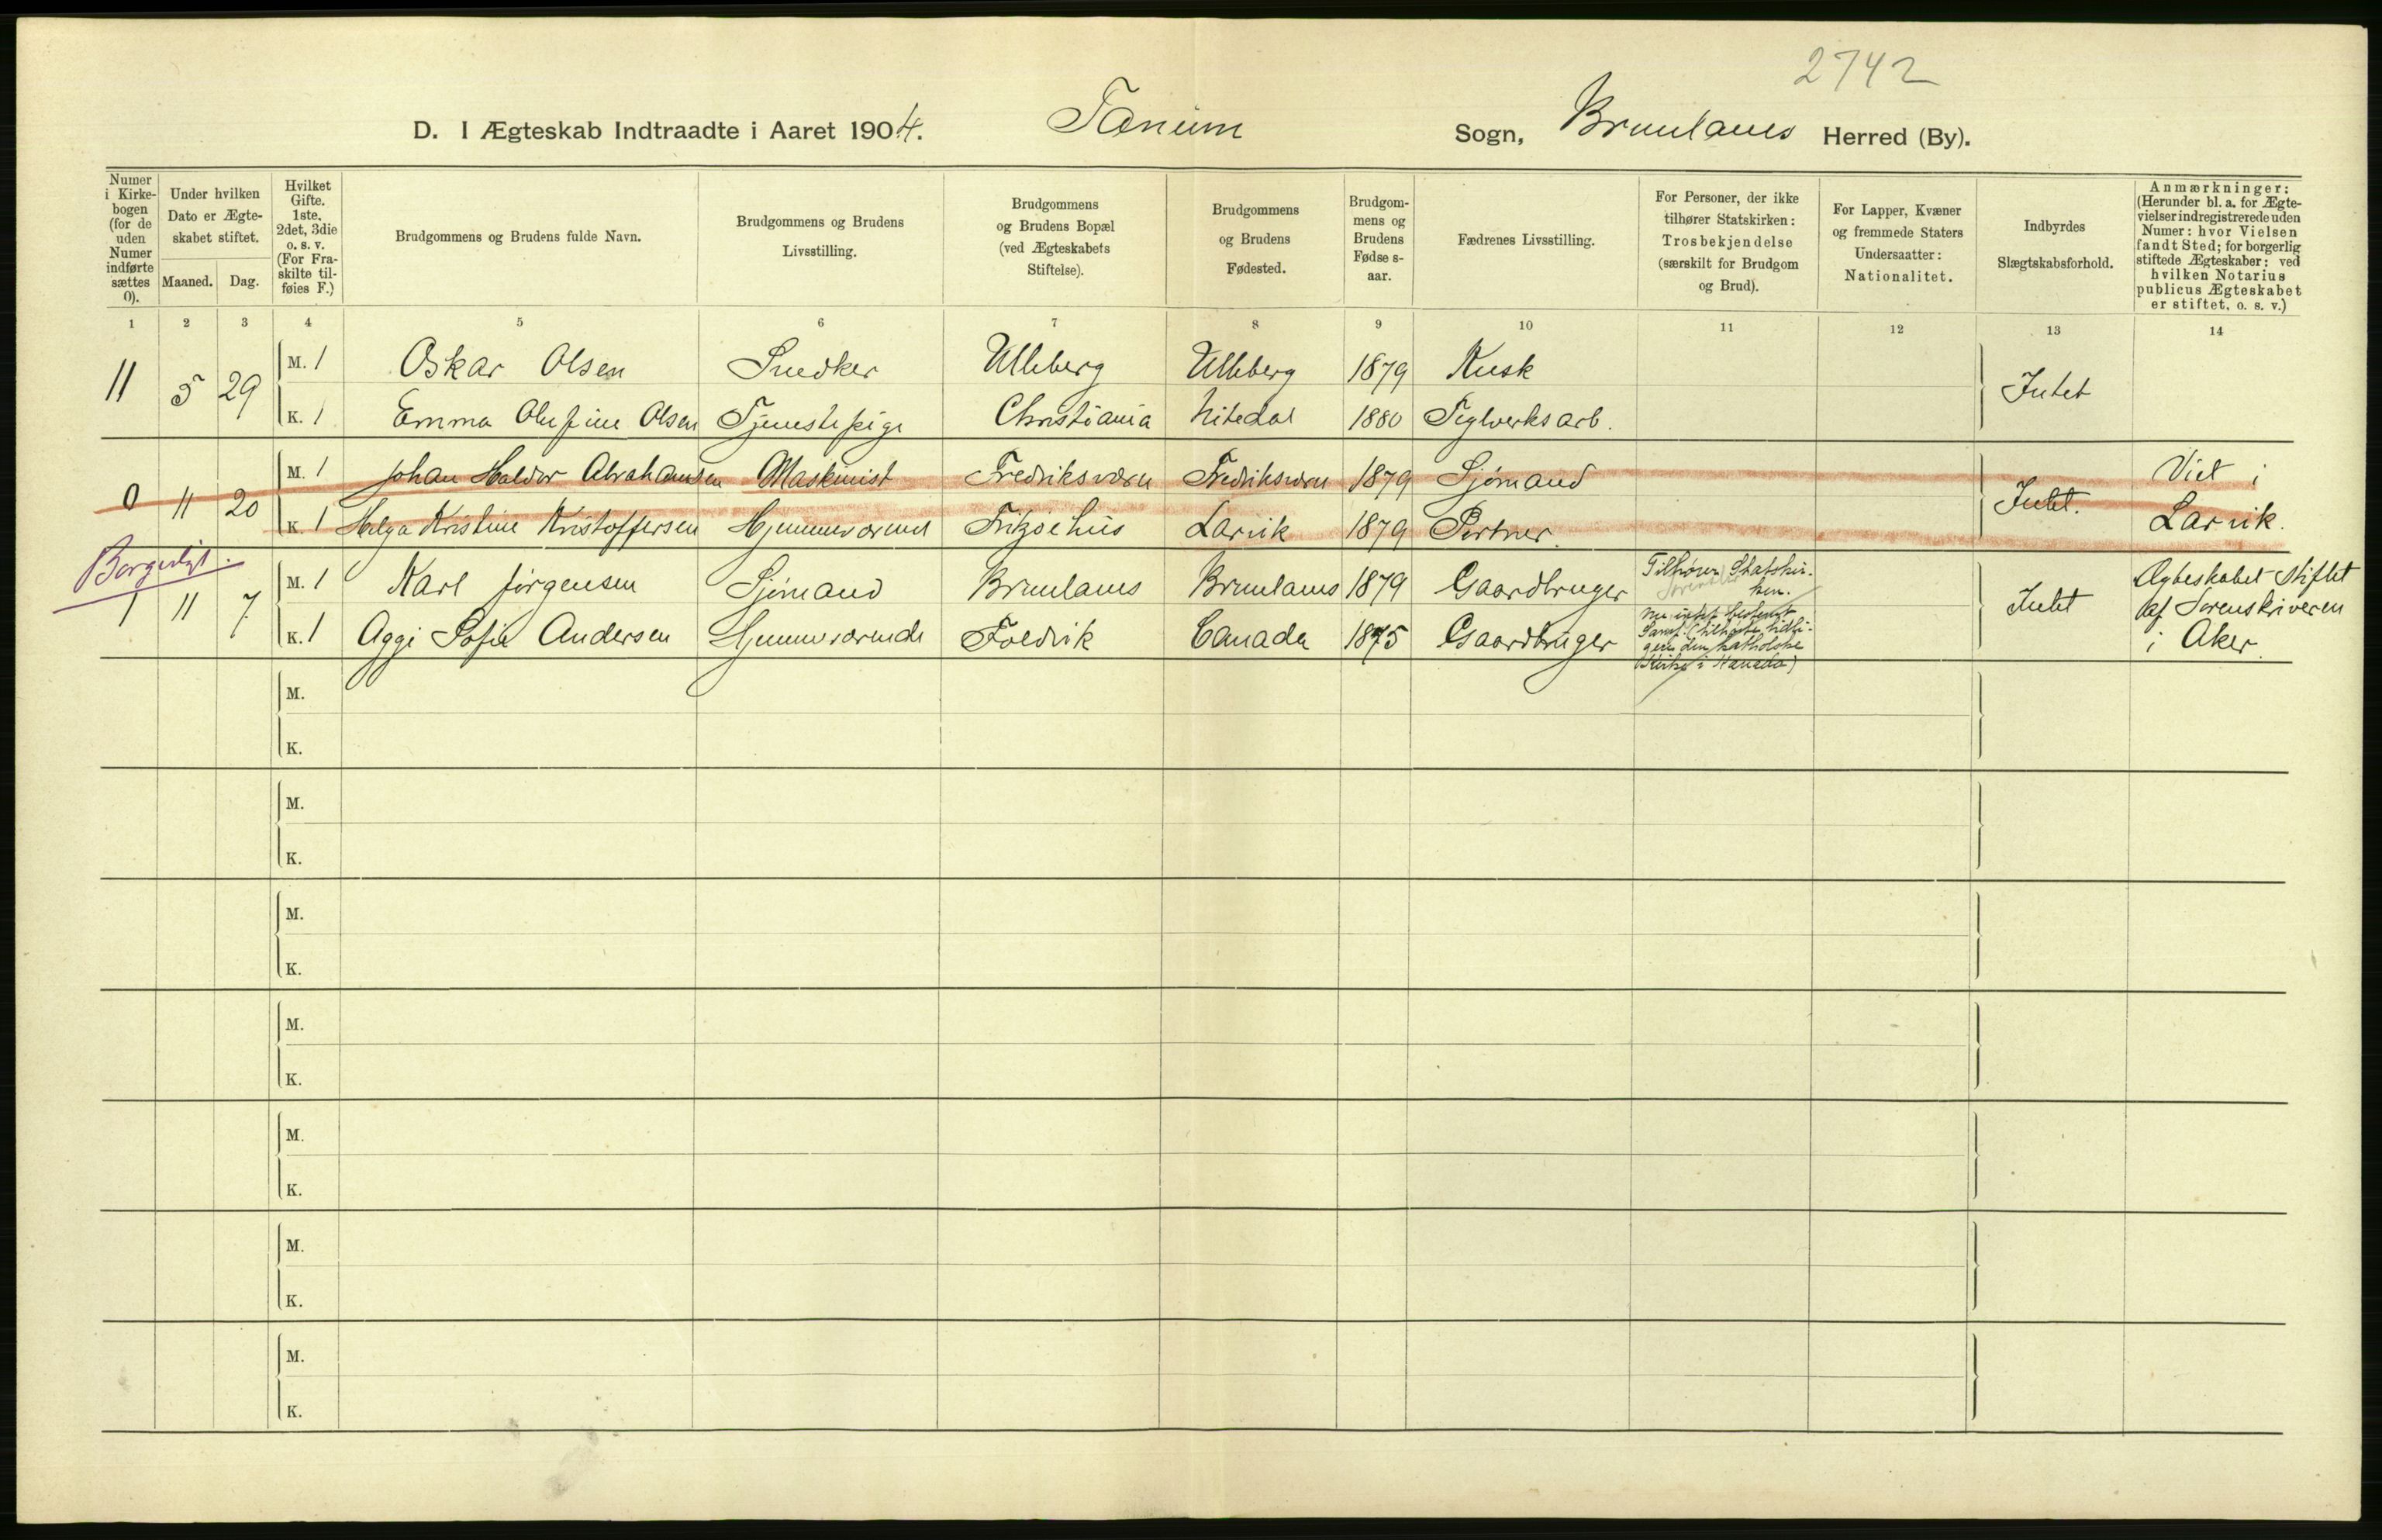 2742
D. I Ægteskab Indtraadte i Aaret 1904. Tanum Sogn, Brunlanes Herred (By).
Numer i Kirke-bogen (for de uden Numer indførte sættes 0).
Under hvilken Dato er Ægte-skabet stiftet.
Maaned. Dag.
Hvilket Gifte. 1ste, 2det, 3die o. s. v. (For Fra-skilte til-føies F.)
Brudgommens og Brudens fulde Navn.
Brudgommens og Brudens Livsstilling.
Brudgommens og Brudens Bopæl (ved Ægteskabets Stiftelse).
Brudgommens og Brudens Fødested.
Brudgom-mens og Brudens Fødse s-aar.
Fædrenes Livsstilling.
For Personer, der ikke tilhører Statskirken: Trosbekjendelse (særskilt for Brudgom og Brud).
For Lapper, Kvæner og fremmede Staters Undersaatter: Nationalitet.
Indbyrdes Slægtskabsforhold.
Anmærkninger: (Herunder bl. a. for Ægte-vielser indregistrerede uden Numer: hvor Vielsen fandt Sted; for borgerlig stiftede Ægteskaber: ved hvilken Notarius publicus Ægteskabet er stiftet, o. s. v.)
1 2 3 4 5 6 7 8 9 10 11 12 13 14
11 5 29
M. 1 Oskar Olsen Snedker Ulleberg Ulleberg 1879 Kusk
Intet
K. 1 Emma Olufine Olsen Tjenestepige Christiania Nitedal 1880 Teglverksarb.
0 11 20
M. 1 Johan Haldor Abrahamsen Maskinist Fredriksværn Fredriksværn 1879 Sjømand
Intet. Viet i Larvik.
K. 1 Helga Kristine Kristoffersen Hjemmeværend Fritzøehus Larvik 1879 Portner.
Borgerligt.
1 11 7
M. 1 Karl Jørgensen Sjømand Brunlanes Brunlanes 1879 Gaardbruger Tilhører Statskir-ken.
Intet Ægteskabet stiftet af Sorenskriveren i Aker.
K. 1 Aggi Sofie Andersen Hjemmeværende Foldvik Canada 1875 Gaardbruger nu intet bestemt Samf. (tilhørte tidli-gere den katholske Kirke i Kanada)
M.
K.
M.
K.
M.
K.
M.
K.
M.
K.
M.
K.
M.
K.